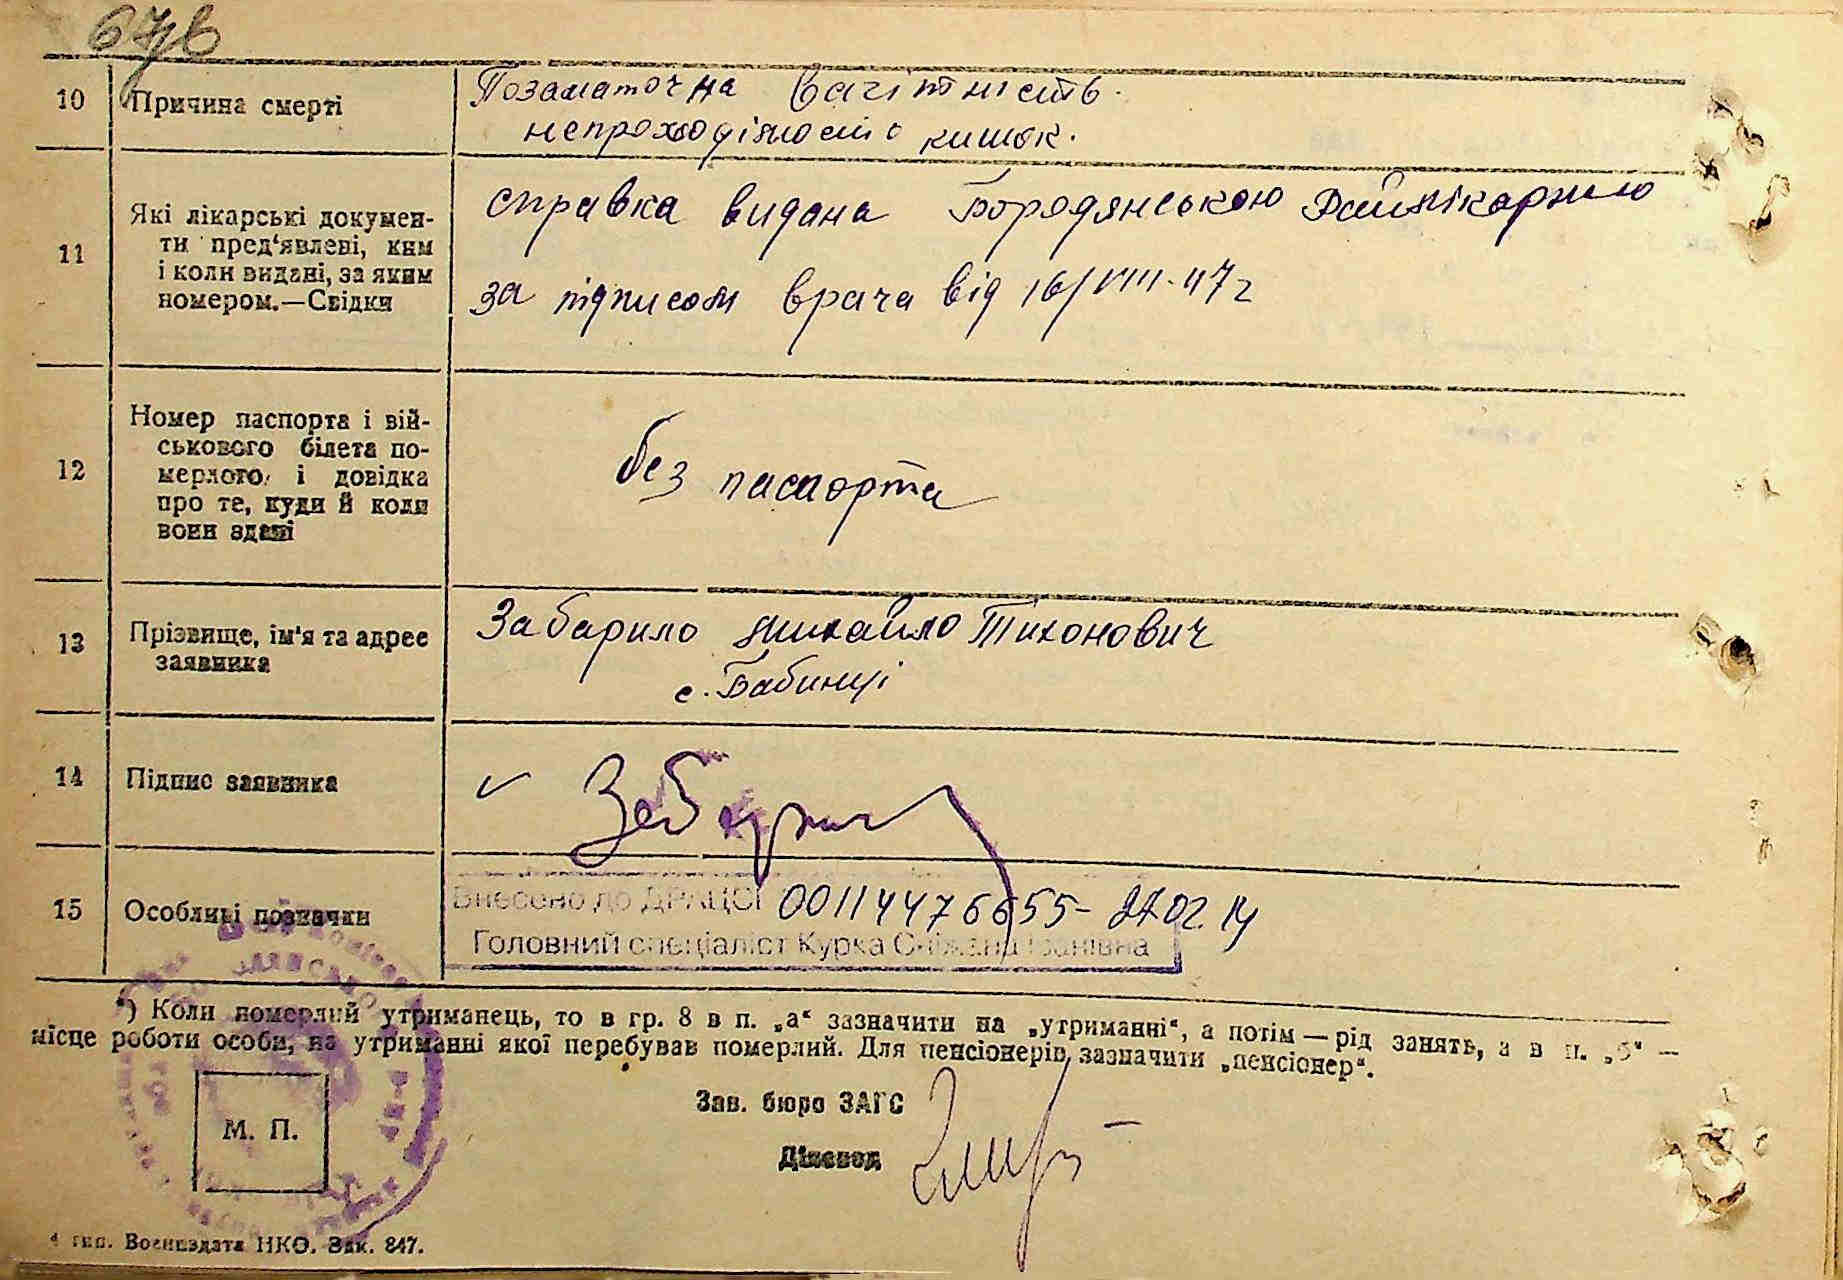 67в
10 Причина смерті
Позаматочна вагітність.
непроходімость кишок.
11 Які лікарські докумен-
ти пред'явлені, ким
і коли видані, за яким
номером.—Свідки
справка видана Бородянською Райлікарнею
за підписом врача від 16/VIII-47 г
12 Номер паспорта і вій-
ськового білета по-
мерлого, і довідка
про те, куди й коли
вони здані
без паспорта
13 Прізвище, ім'я та адрес
заявника
Забарило Михайло Тихонович
с. Бабинці
14 Підпис заявника
15 Особливі позначки
Внесено до ДРАЦСГ 00114476655- 27.02.14
Головний спеціаліст Курка Сніжана Іванівна
*) Коли померлий утриманець, то в гр. 8 в п. „а“ зазначити на „утриманні“, а потім — рід занять, а в п. „б“ —
місце роботи особи, на утриманні якої перебував померлий. Для пенсіонерів зазначити „пенсіонер“.
Зав. бюро ЗАГС
М. П.
Діловод
4 тип. Воениздата НКО. Зак. 847.